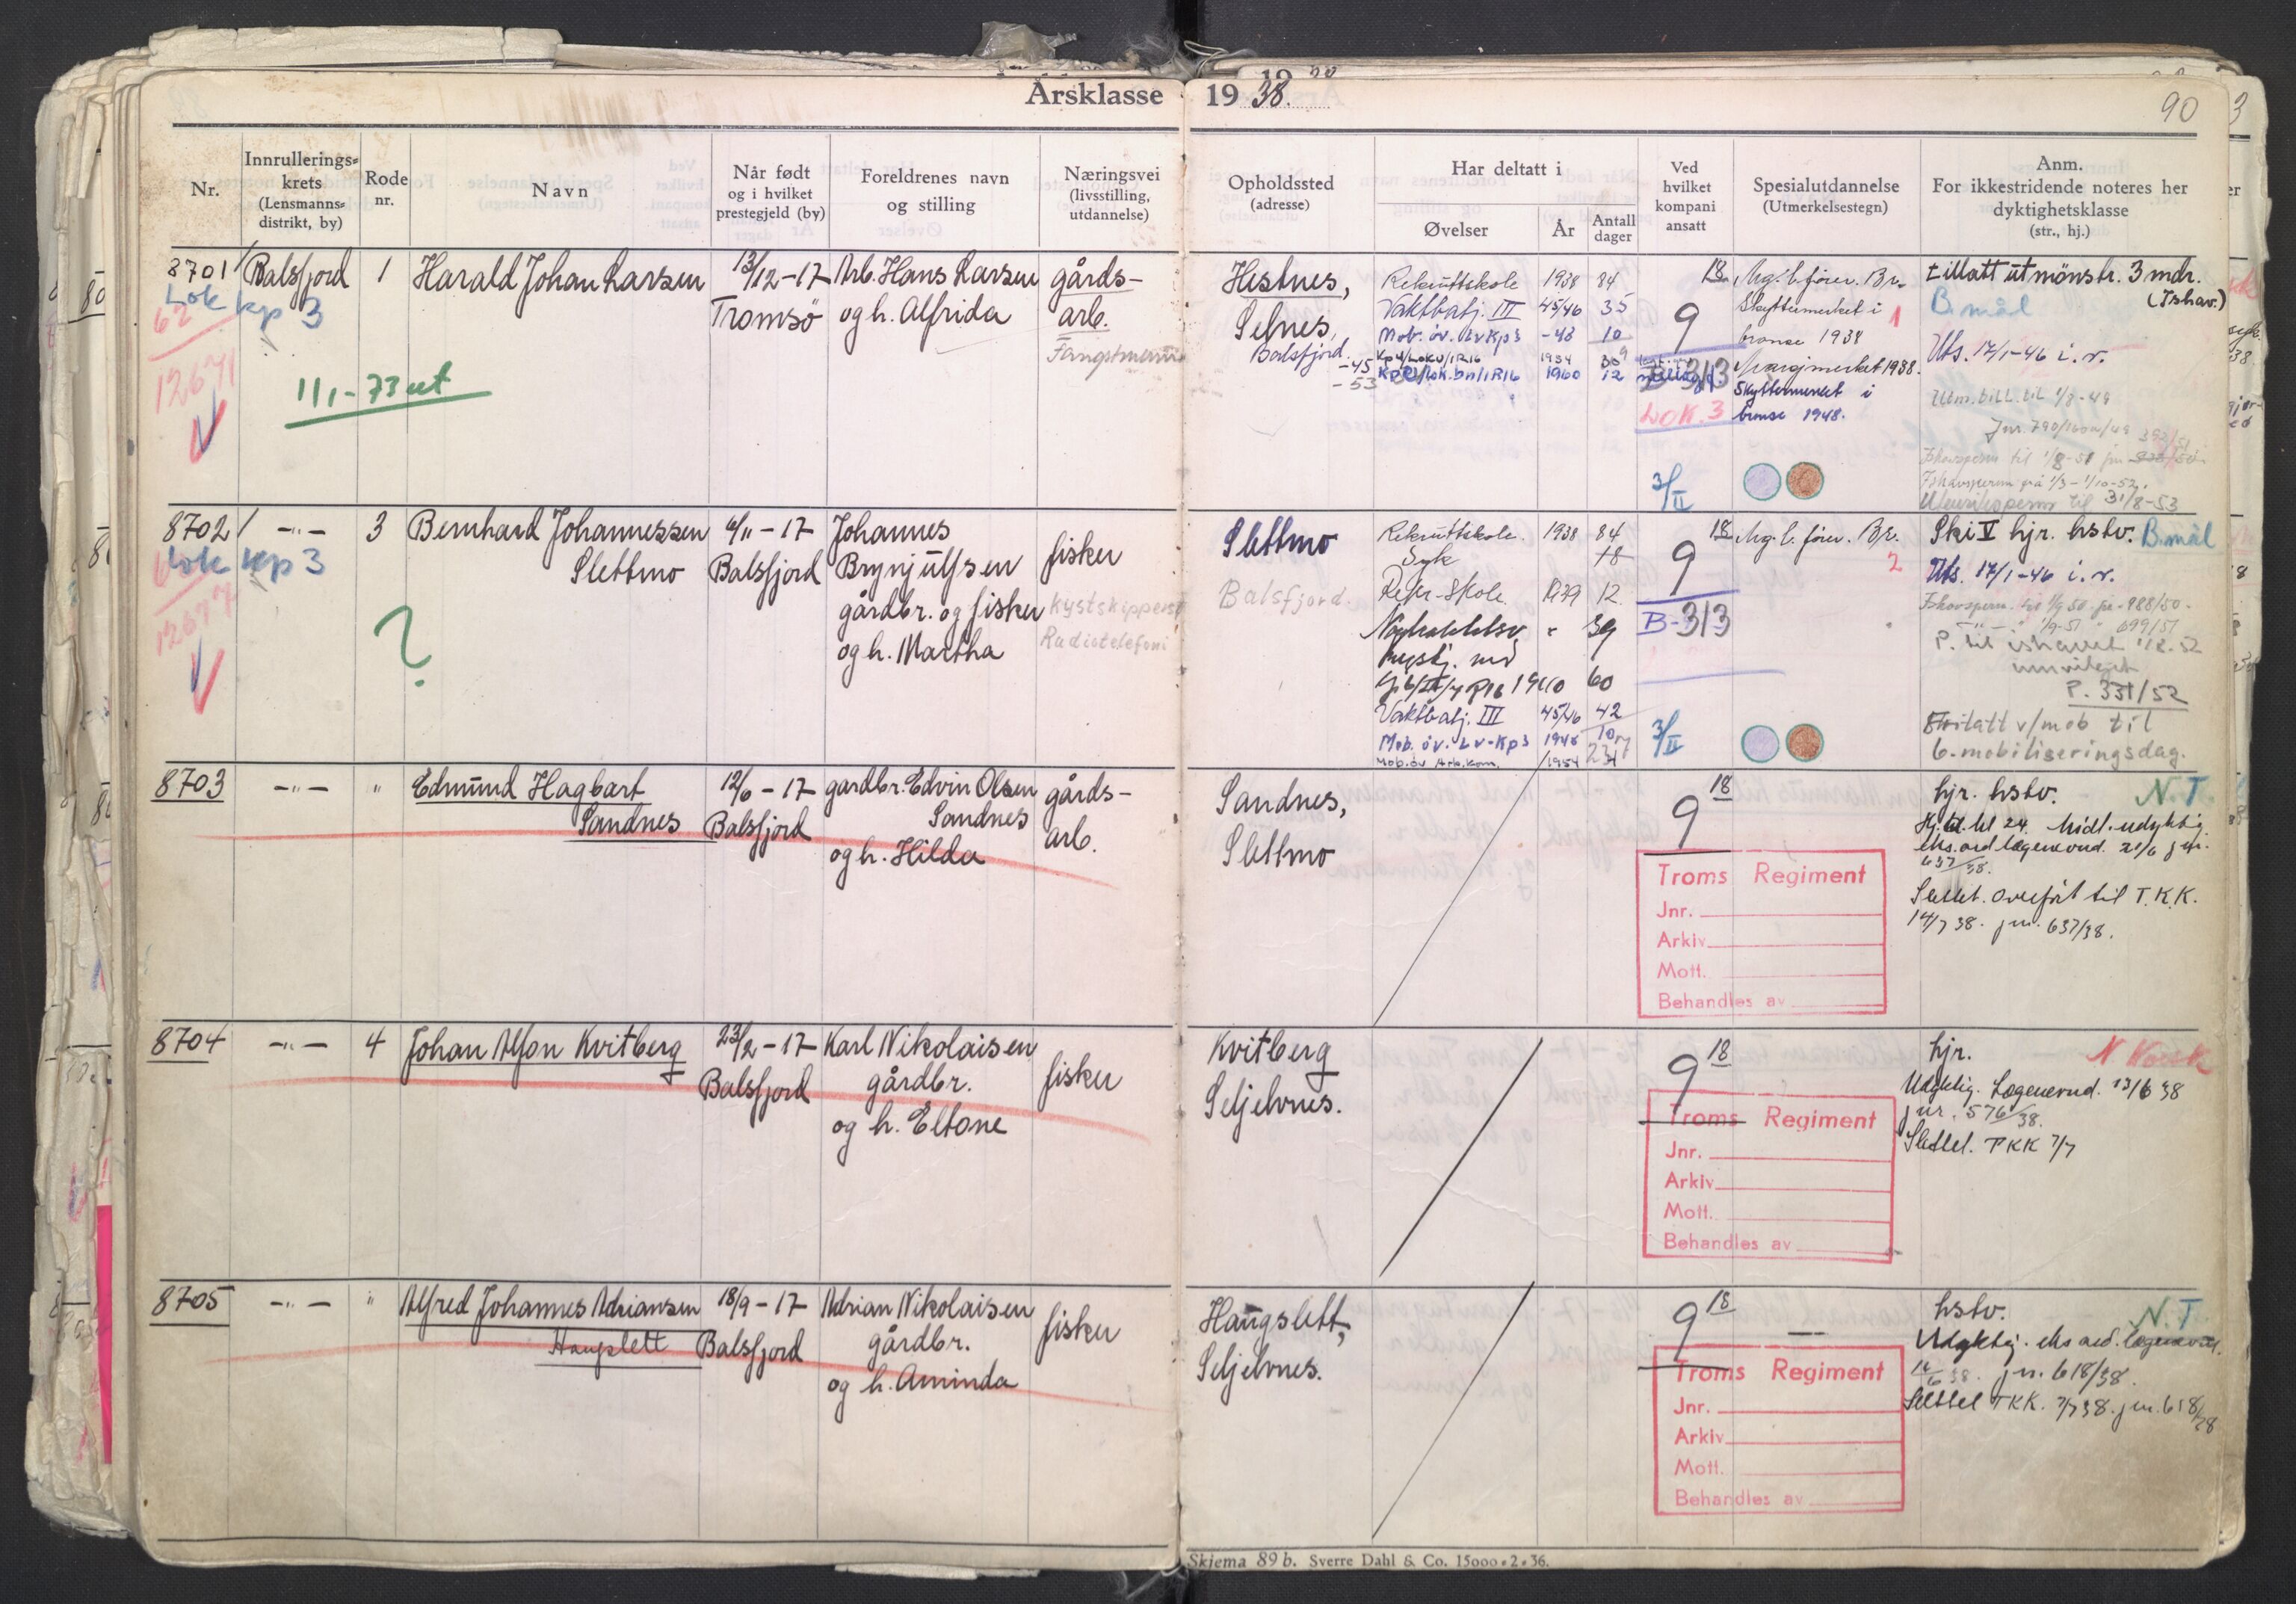 Årsklasse 1938.
90
Nr.
Innrullerings-
krets
(Lensmanns-
distrikt, by)
Rode
nr.
Navn
Når født
og i hvilket
prestegjeld (by)
Foreldrenes navn
og stilling
Næringsvei
(livsstilling,
utdannelse)
Opholdssted
(adresse)
Har deltatt i
Øvelser
År
Antall
dager
Ved
hvilket
kompani
ansatt
Spesialutdannelse
(Utmerkelsestegn)
Anm.
For ikkestridende noteres her
dyktighetsklasse
(str., hj.)
8701 Balsfjord 1 Harald Johan Larsen 13/12-17 Arb. Hans Larsen gårds-
Tromsø og h. Alfrida arb.
Lok kp 3
62
12671
11/1-73 ut
Fangstmann
Hestnes,
Selnes,
Balsfjord.
-45
-53
Rekruttskole 1938 84
Vaktbatj. III 45/46 35
Mob. öv. Lv Kp3 -48 10
1960 12
18
9
B-313
LOK. 3
3/II
Mg. b. fører. Br.
Skyttermerket i
bronse 1938
Marsjmerket 1938.
Skyttermerket i
bronse 1948.
1
tillatt utmönstr. 3 mdr.
(Ishav.)
B. mål
Uts. 17/1-46 i. r.
Utm. till. til 1/8-49
Jnr. 790/
Ishavsperm til 1/8-51 jnr
Ishavsperm fra 1/3-1/10-52.
til 31/8-53
8702 -"- 3 Bernhard Johannessen 6/11-17 Johannes
Slettmo Balsfjord Brynjulfsen fisker
gårdbr. og fisker
og h. Martha
Lok kp 3
12677
?
kystskippers
Radiotelefoni
Slettmo
Balsfjord.
Rekruttskole. 1938 84
Syk 18
Repr-Skole. 1939 12
Nøytralitetsv. " 39
1940 60
Vaktbatj. III 45/46 42
Mob. öv. Lv-Kp3 1948 10
Mob. öv Arb.kom. 1954
234
18
9
B-313
3/II
Mg. b. fører. Br.
2
Ski V hjr. hstv. B. mål
Uts. 17/1-46 i. r.
Ishavsperm. til 1/9 50. jnr 988/50.
1/9-51 699/51
P. til ishavet 1/8-52
innvilget
P. 331/52
Fritatt v/mob til
6. mobiliseringsdag.
8703 -"- " Edmund Hagbart 12/6-17 gardbr. Edvin Olsen gårds-
Sandnes Balsfjord Sandnes arb.
og h. Hilda
Sandnes,
Slettmo
18
9
Troms Regiment
Jnr.
Arkiv
Mott.
Behandles av
hjr. hstv. N. T.
Midl. udyktig
eks. ord lægenevnd. 21/6 jnr.
637/38.
Slettet. overført til T.K.K.
14/7 38. jnr. 637/38.
8704 -"- 4 Johan Alfon Kvitberg 23/2-17 Karl Nikolaisen
Balsfjord gårdbr. fisker
og h. Eltone
Kvitberg
Seljelvnes.
18
9
Troms Regiment
Jnr.
Arkiv
Mott.
Behandles av
hjr. N Norsk
Udyktig. Lægenevnd. 13/6 38
jnr. 576/38.
Slettet. TKK 7/7
8705 -"- " Alfred Johannes Adriansen 18/9-17 Adrian Nikolaisen
Haugslett Balsfjord gårdbr. fisker
og h. Aminda
Haugslett,
Seljelvnes.
18
9
Troms Regiment
Jnr.
Arkiv
Mott.
Behandles av
hstv. N. T.
Udyktig. eks ord. lægenevnd.
14/6 38. jnr. 618/38.
Slettet TKK. 7/7 38. jnr. 618/38
Skjema 89 b. Sverre Dahl & Co. 15000-2-36.